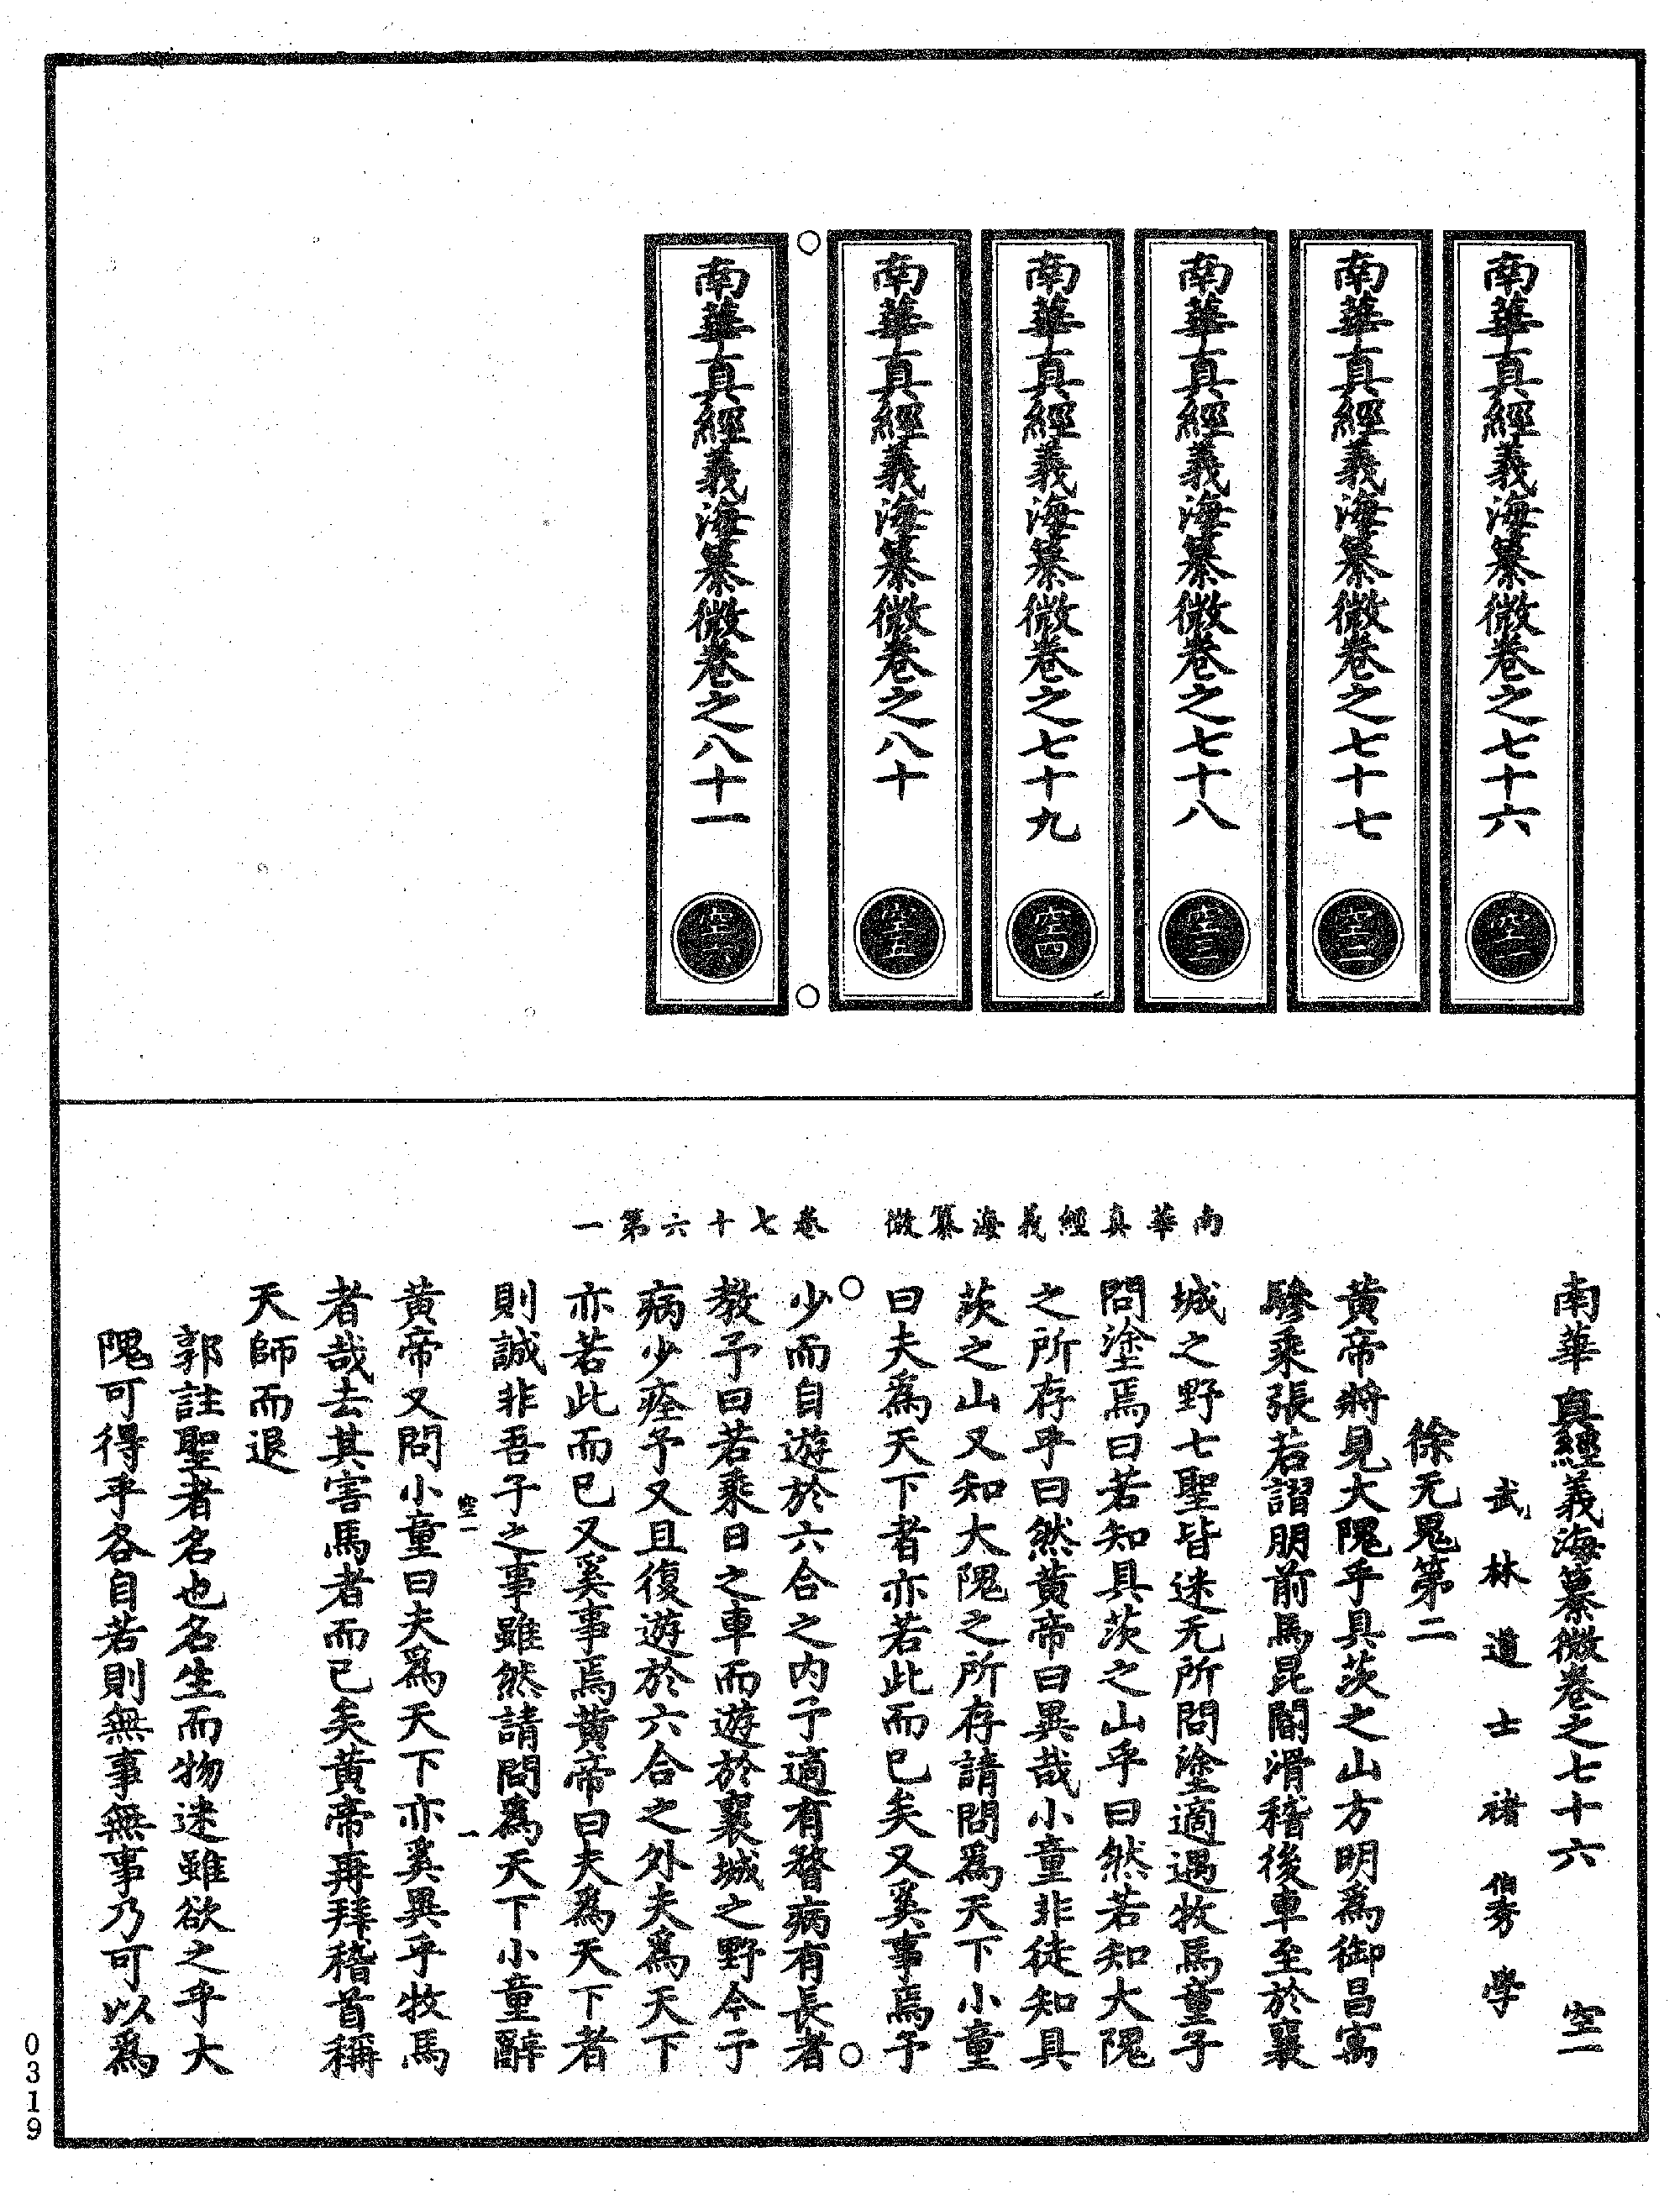 南華真經義海纂微卷之七十六
空一
南華真經義海纂微卷之七十七
空二
南華真經義海纂微卷之七十八
空三
南華真經義海纂微卷之七十九
空四
南華真經義海纂微卷之八十
空五
南華真經義海纂微卷之八十一
空六
南華真經義海纂微　卷七十六第一
南華真經義海纂微卷之七十六　空一
武林道士褚伯秀學
徐无鬼第二
黃帝將見大隗乎具茨之山方明為御昌㝢
驂乘張若謵朋前馬昆閽滑稽後車至於襄
城之野七聖皆迷无所問塗適遇牧馬童子
問塗焉曰若知具茨之山乎曰然若知大隗
之所存乎曰然黃帝曰異哉小童非徒知具
茨之山又知大隗之所存請問為天下小童
曰夫為天下者亦若此而已矣又奚事焉予
少而自遊於六合之内予適有瞀病有長者
教予曰若乘日之車而遊於襄城之野今予
病少痊予又且復遊於六合之外夫為天下
亦若此而已又奚事焉黃帝曰夫為天下者
則誠非吾子之事雖然請問為天下小童辭
空一　一
黃帝又問小童曰夫為天下亦奚異乎牧馬
者哉去其害馬者而已矣黃帝再拜稽首稱
天師而退
郭註聖者名也名生而物迷雖欲之乎大
隗可得乎各自若則無事無事乃可以為
0319